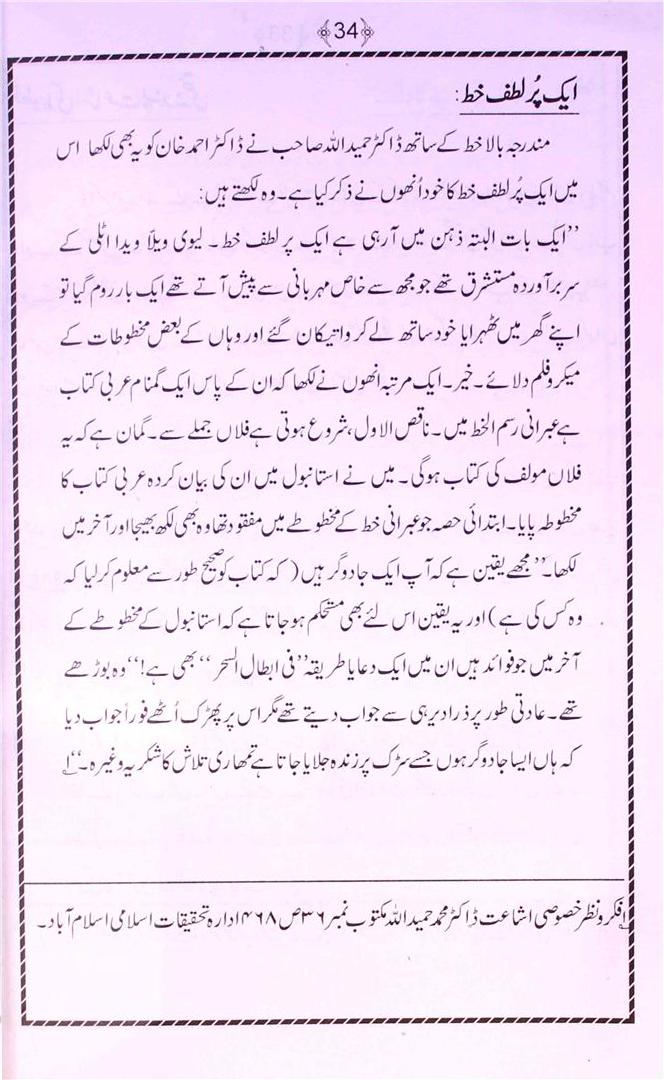 ﴿34﴾
ایک پُر لطف خط:
مندرجہ بالا خط کے ساتھ ڈاکٹر حمید اللہ صاحب نے ڈاکٹر احمد خان کو یہ بھی لکھا اس
میں ایک پُر لطف خط کا خود اُنھوں نے ذکر کیا ہے۔ وہ لکھتے ہیں:
”ایک بات البتہ ذہن میں آرہی ہے ایک پر لطف خط۔ لیوی ویلّا ویدا اٹلی کے
سربرآوردہ مستشرق تھے جو مجھ سے خاص مہربانی سے پیش آتے تھے ایک بار روم گیا تو
اپنے گھر میں ٹھہرایا خود ساتھ لے کر واتیکان گئے اور وہاں کے بعض مخطوطات کے
میکروفلم دلائے۔ خیر۔ ایک مرتبہ انھوں نے لکھا کہ ان کے پاس ایک گمنام عربی کتاب
ہے عبرانی رسم الخط میں۔ ناقص الاول، شروع ہوتی ہے فلاں جملے سے۔ گمان ہے کہ یہ
فلاں مولف کی کتاب ہوگی۔ میں نے استانبول میں ان کی بیان کردہ عربی کتاب کا
مخطوطہ پایا۔ ابتدائی حصہ جو عبرانی خط کے مخطوطے میں مفقود تھا وہ بھی لکھ بھیجا اور آخر میں
لکھا۔ ”مجھے یقین ہے کہ آپ ایک جادوگر ہیں (کہ کتاب کو صحیح طور سے معلوم کرلیا کہ
وہ کس کی ہے) اور یہ یقین اس لئے بھی مستحکم ہوجاتا ہے کہ استانبول کے مخطوطے کے
آخر میں جو فوائد ہیں ان میں ایک دعا یا طریقہ ”فی ابطال السحر“ بھی ہے!“ وہ بوڑھے
تھے۔ عادتی طور پر ذرا دیر ہی سے جواب دیتے تھے مگر اس پر پھڑک اُٹھے فوراً جواب دیا
کہ ہاں ایسا جادوگر ہوں جسے سڑک پر زندہ جلایا جاتا ہے تمھاری تلاش کا شکریہ وغیرہ۔“ ۱؎
۱؎ فکر و نظر خصوصی اشاعت ڈاکٹر محمد حمید اللہ مکتوب نمبر ۳۶ ص ۴۶۸ ادارہ تحقیقات اسلامی اسلام آباد۔